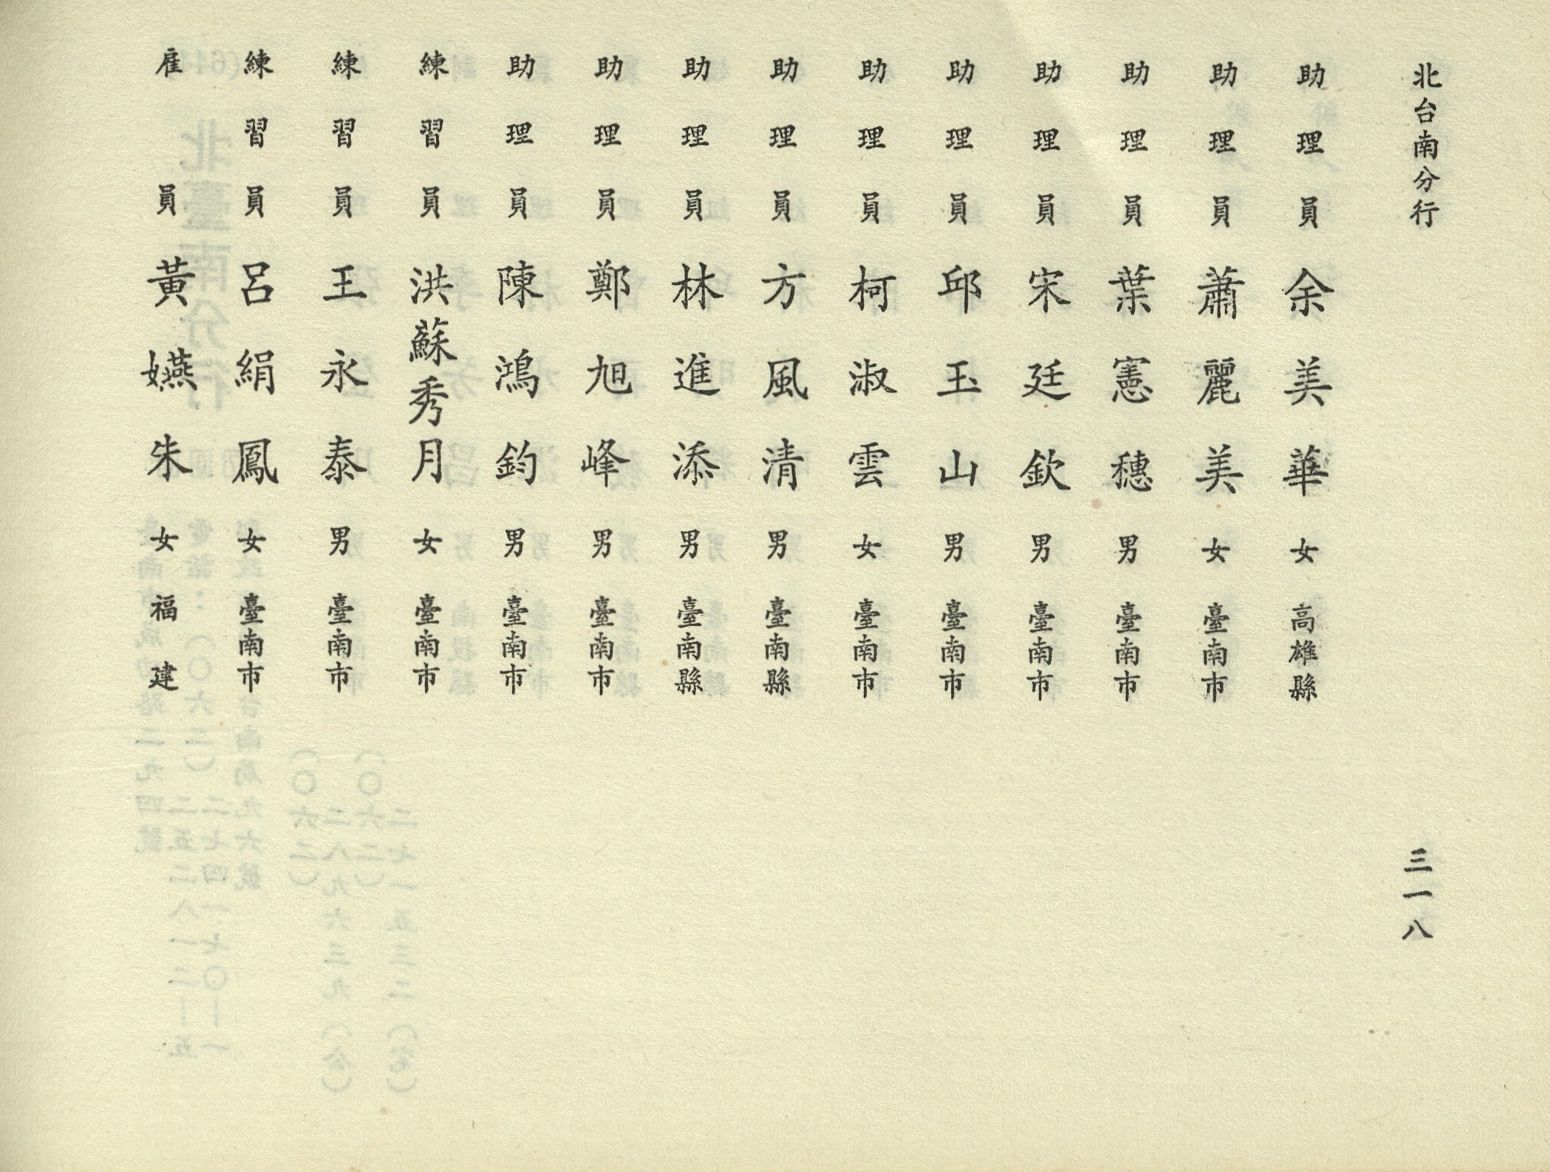 北台南分行
三一八
助理員 余美華 女 高雄縣
助理員 蕭麗美 女 臺南市
助理員 葉憲穗 男 臺南市
助理員 宋廷欽 男 臺南市
助理員 邱玉山 男 臺南市
助理員 柯淑雲 女 臺南市
助理員 方風清 男 臺南縣
助理員 林進添 男 臺南縣
助理員 鄭旭峰 男 臺南市
助理員 陳鴻鈞 男 臺南市
練習員 洪蘇秀月 女 臺南市
練習員 王永泰 男 臺南市
練習員 呂絹鳳 女 臺南市
雇員 黃嬿朱 女 福建